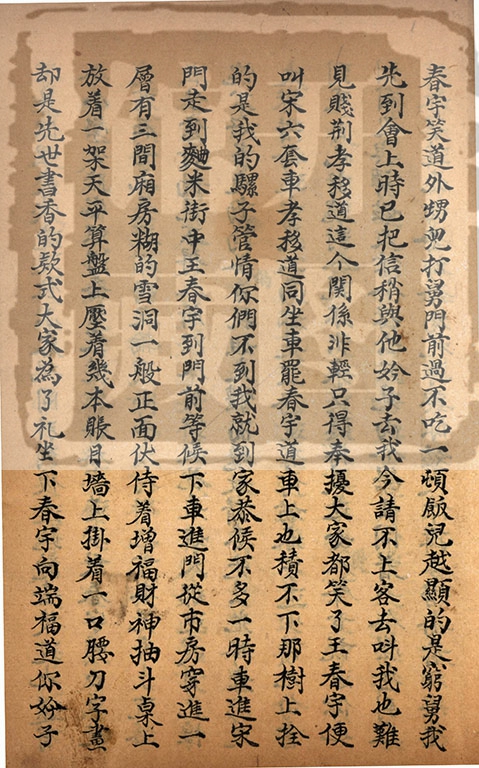 春宇笑道外甥兒打舅門前過不吃一頓飯兒越顯的是窮舅我
先到會上時已把信稍與他妗子去我今請不上客去呌我也難
見賤荆孝移道這个關係非輕只得奉擾大家都笑了王春宇便
叫宋六套車孝移道同坐車罷春宇道車上也積不下那樹上拴
的是我的騾子管情你們不到我就到家恭候不多一時車進宋
門走到麯米街中王春宇到門前等候下車進門從市房穿進一
層有三間廂房糊的雪洞一般正面伏侍着增福財神抽斗桌上
放着一架天平算盤上壓着幾本賬目墻上掛着一口腰刀字畫
却是先世書香的款式大家為了礼坐下春宇向端福道你妗子